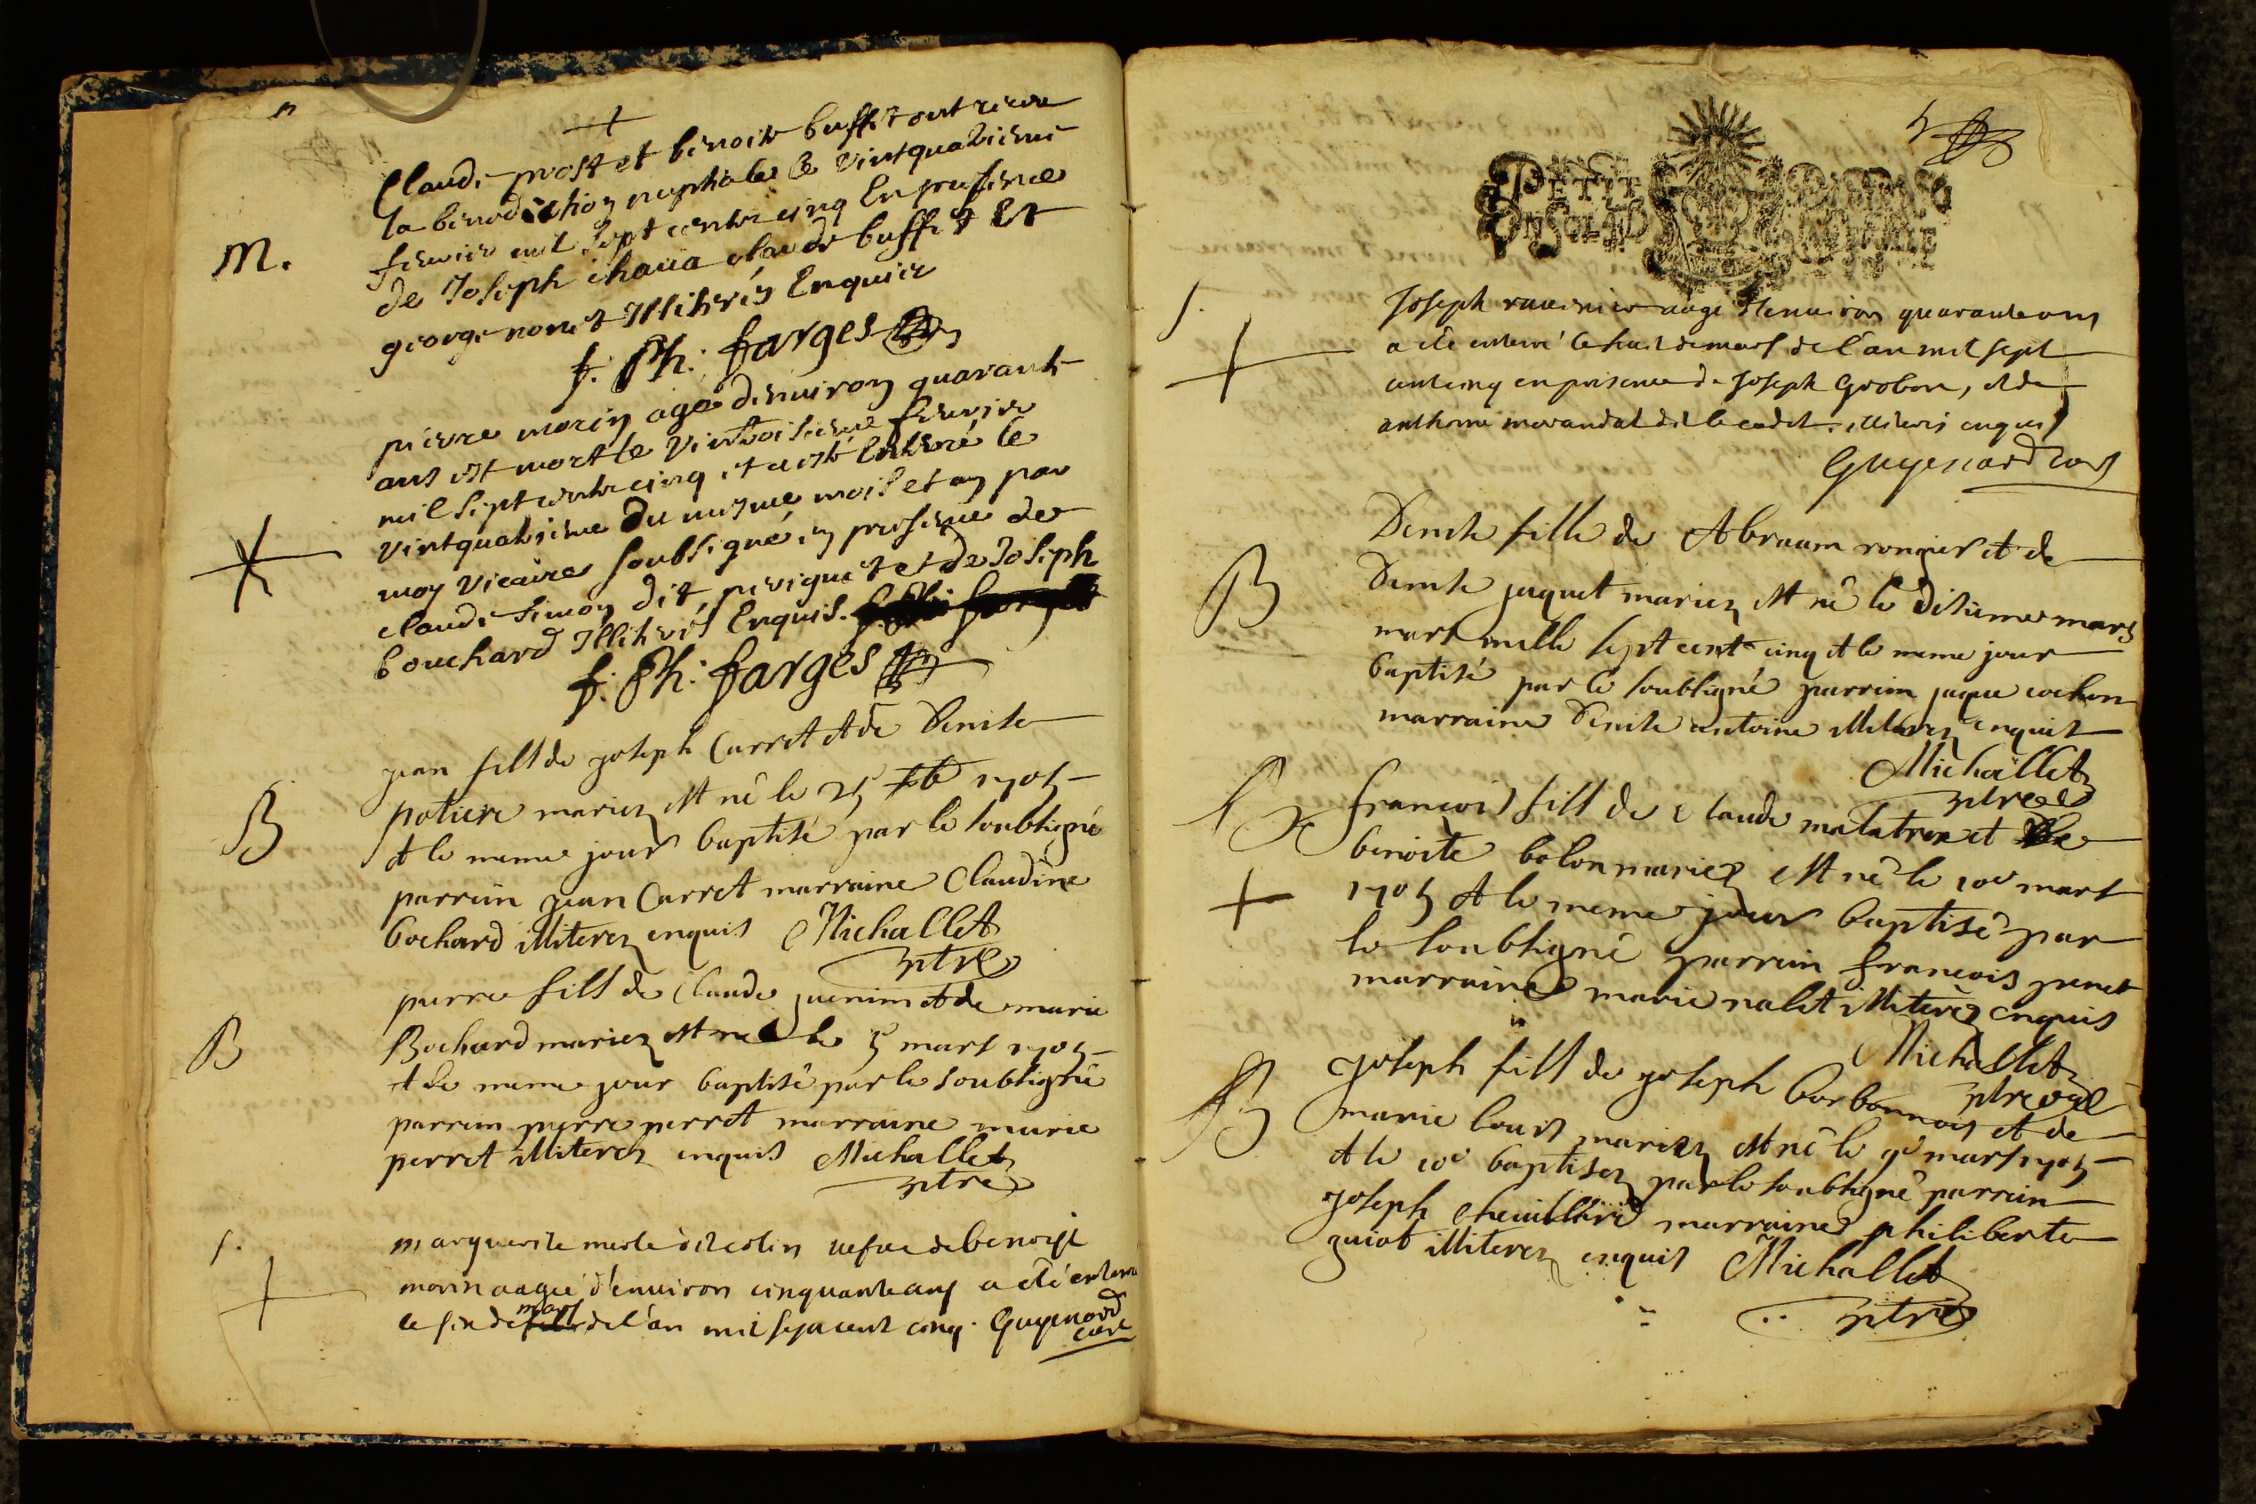 Claude prost et benoite buffet ont receu
la benediction nuptiale le vintquatrieme
fevrier mil sept cents cinq En presence
de Joseph chaua claude buffet Et
M.
george nonet Illiterés Enquis
f. Ph. farges
pierre morin agé denuiron quarante
ans est mort le vintroisieme feurier
mil sept cents cinq et a esté Enterré le
vintquatrieme du mesme mois et an par
moy vicaire soubsigné en presence de
claude simon dit periguet et de Joseph
bouchard Illiterés Enquis.
f. Ph. farges
jean fils de joseph Carret et de Denise
potiere mariez est né le 25 fb 1705
B
et le meme jour baptisé par le soubsigné
parrain jean Carret marraine Claudine
bochard illiterez enquis Michallet
ptre
pierre fils de Claude juenin et de marie
B
Bochard mariez est né le 5 mars 1705
et le meme jour baptisé par le soubsigné
parrain pierre perret marraine marie
perret illiterez enquis Michallet
ptre
S.
marguerite merle dit colin vefue de benoist
morin aagée d'enuiron cinquante ans a été enterré
le six de mars de l'an mil sept cent cinq. Guyenard
curé
5
PETIT PAPIER
UN SOL
S.
Joseph rauenier aagé d'enuiron quarante ans
a été enterré le huit de mars de l'an mil sept
cent cinq en presence de Joseph Grobon, et de
anthoine morandat dit le cadet. illiterés enquis
Guyenard curé
Denise fille de Abraam rongier et de
B
Denise jaquet mariez est né le disieme mars
mars mille sept cent cinq et le meme jour
baptisé par le soubsigné parrain jaque cochon
marraine Denise antoine illiterez enquis
Michallet
ptre
B
françois fils de Claude malatrex et de
benoite bolon mariez est né le 10e mars
1705 et le meme jour baptisé par
le soubsigné parrain françois
marraine marie nalet illiterez enquis
Michallet
ptre
B
joseph fils de joseph borbonnois et de
marie louis mariez est né le 9e mars 1705
et le 10e baptisez par le soubsigné parrain
joseph marraine philiberte
guiot illiterez enquis Michallet
ptre